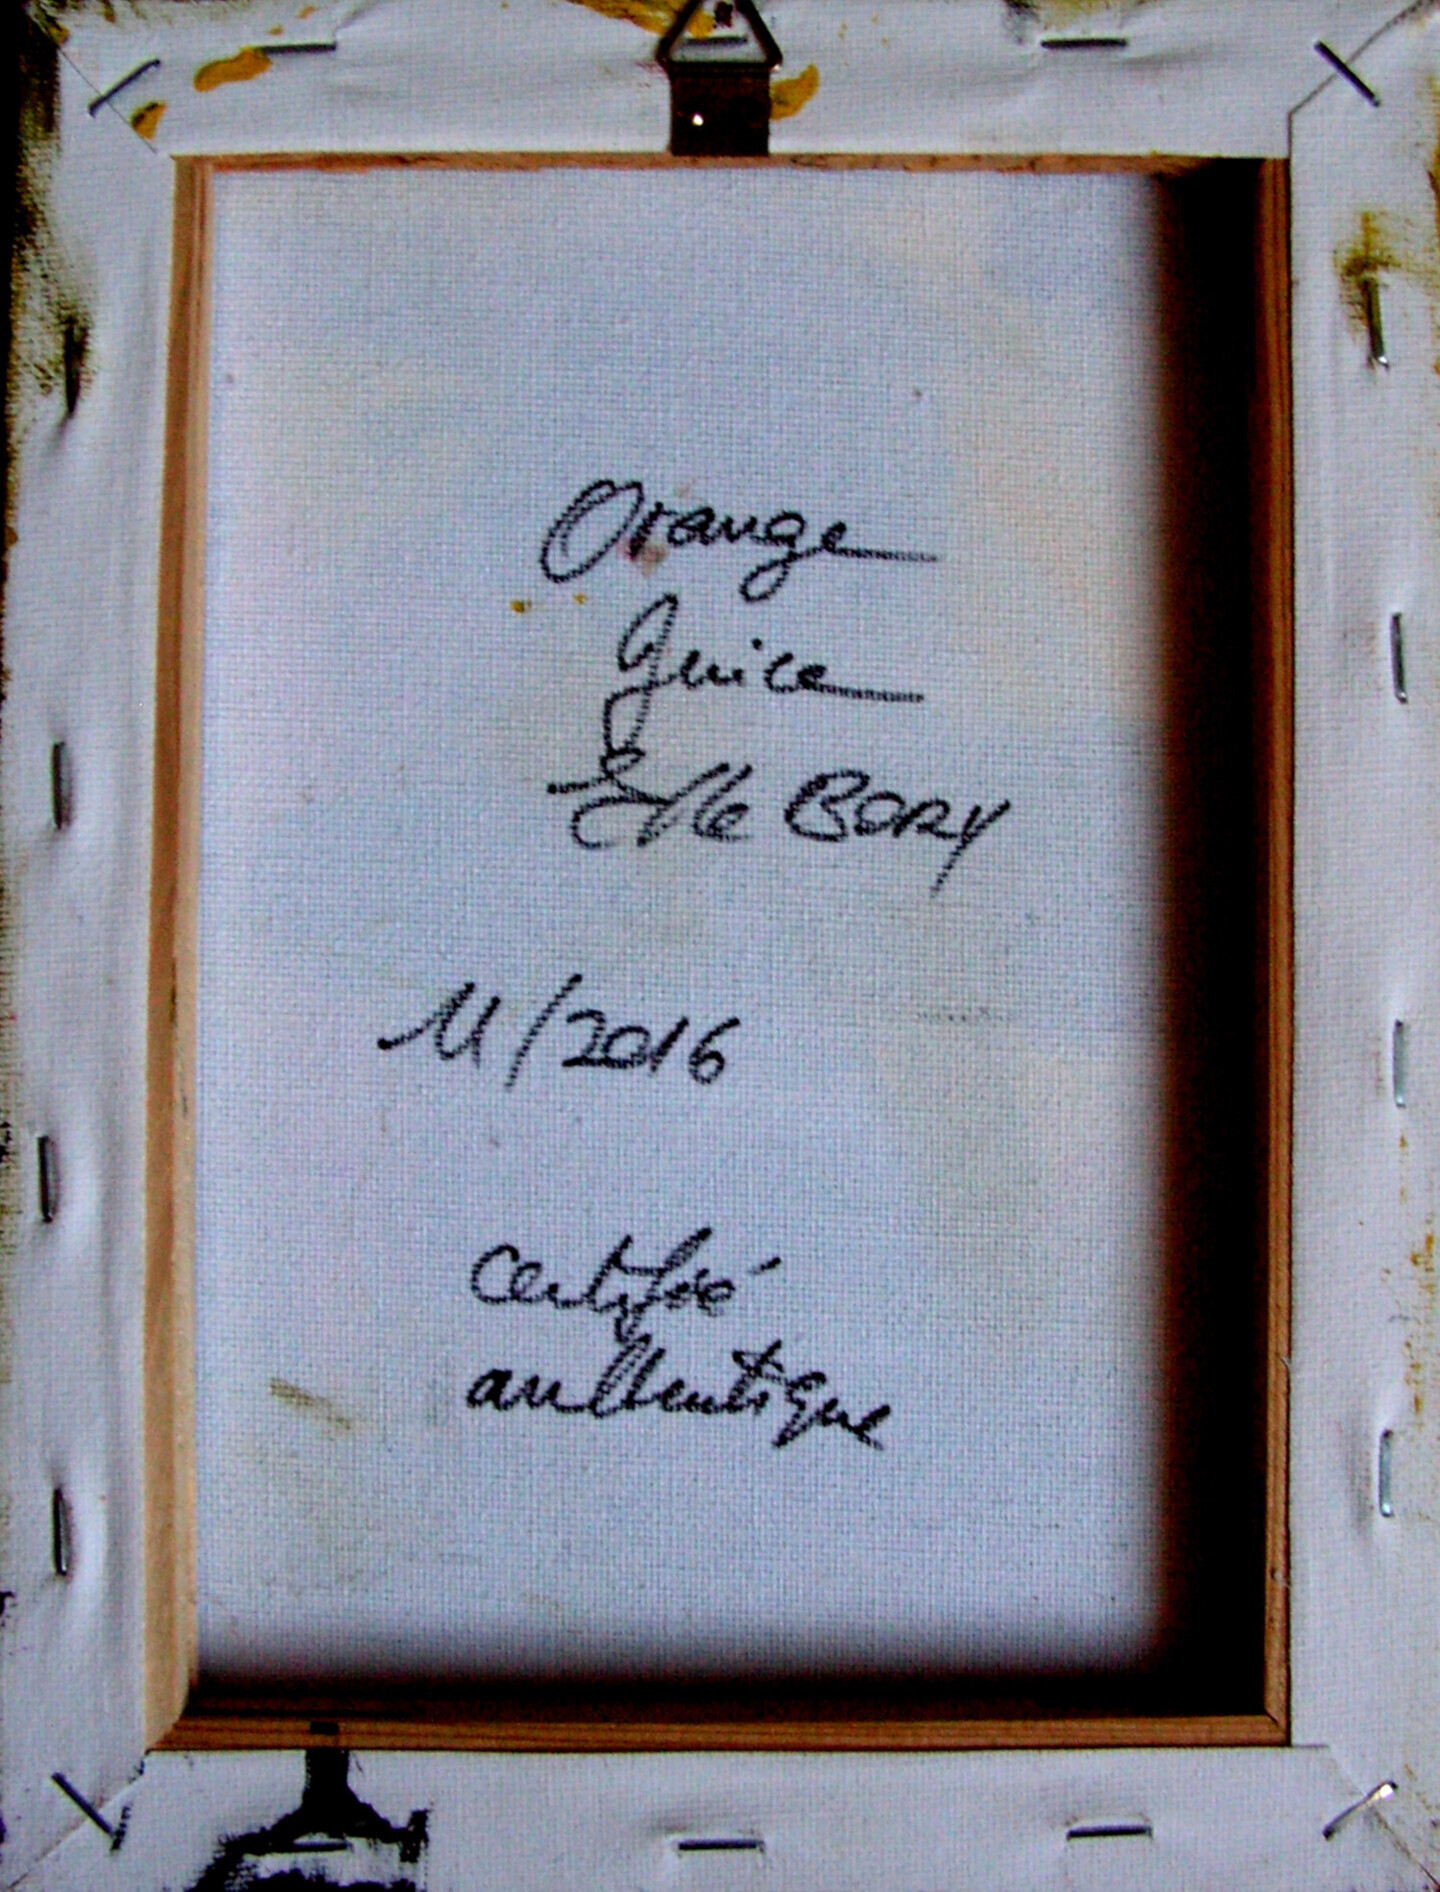 Orange
Juice
Elle BORY
11/2016
certifié
authentique